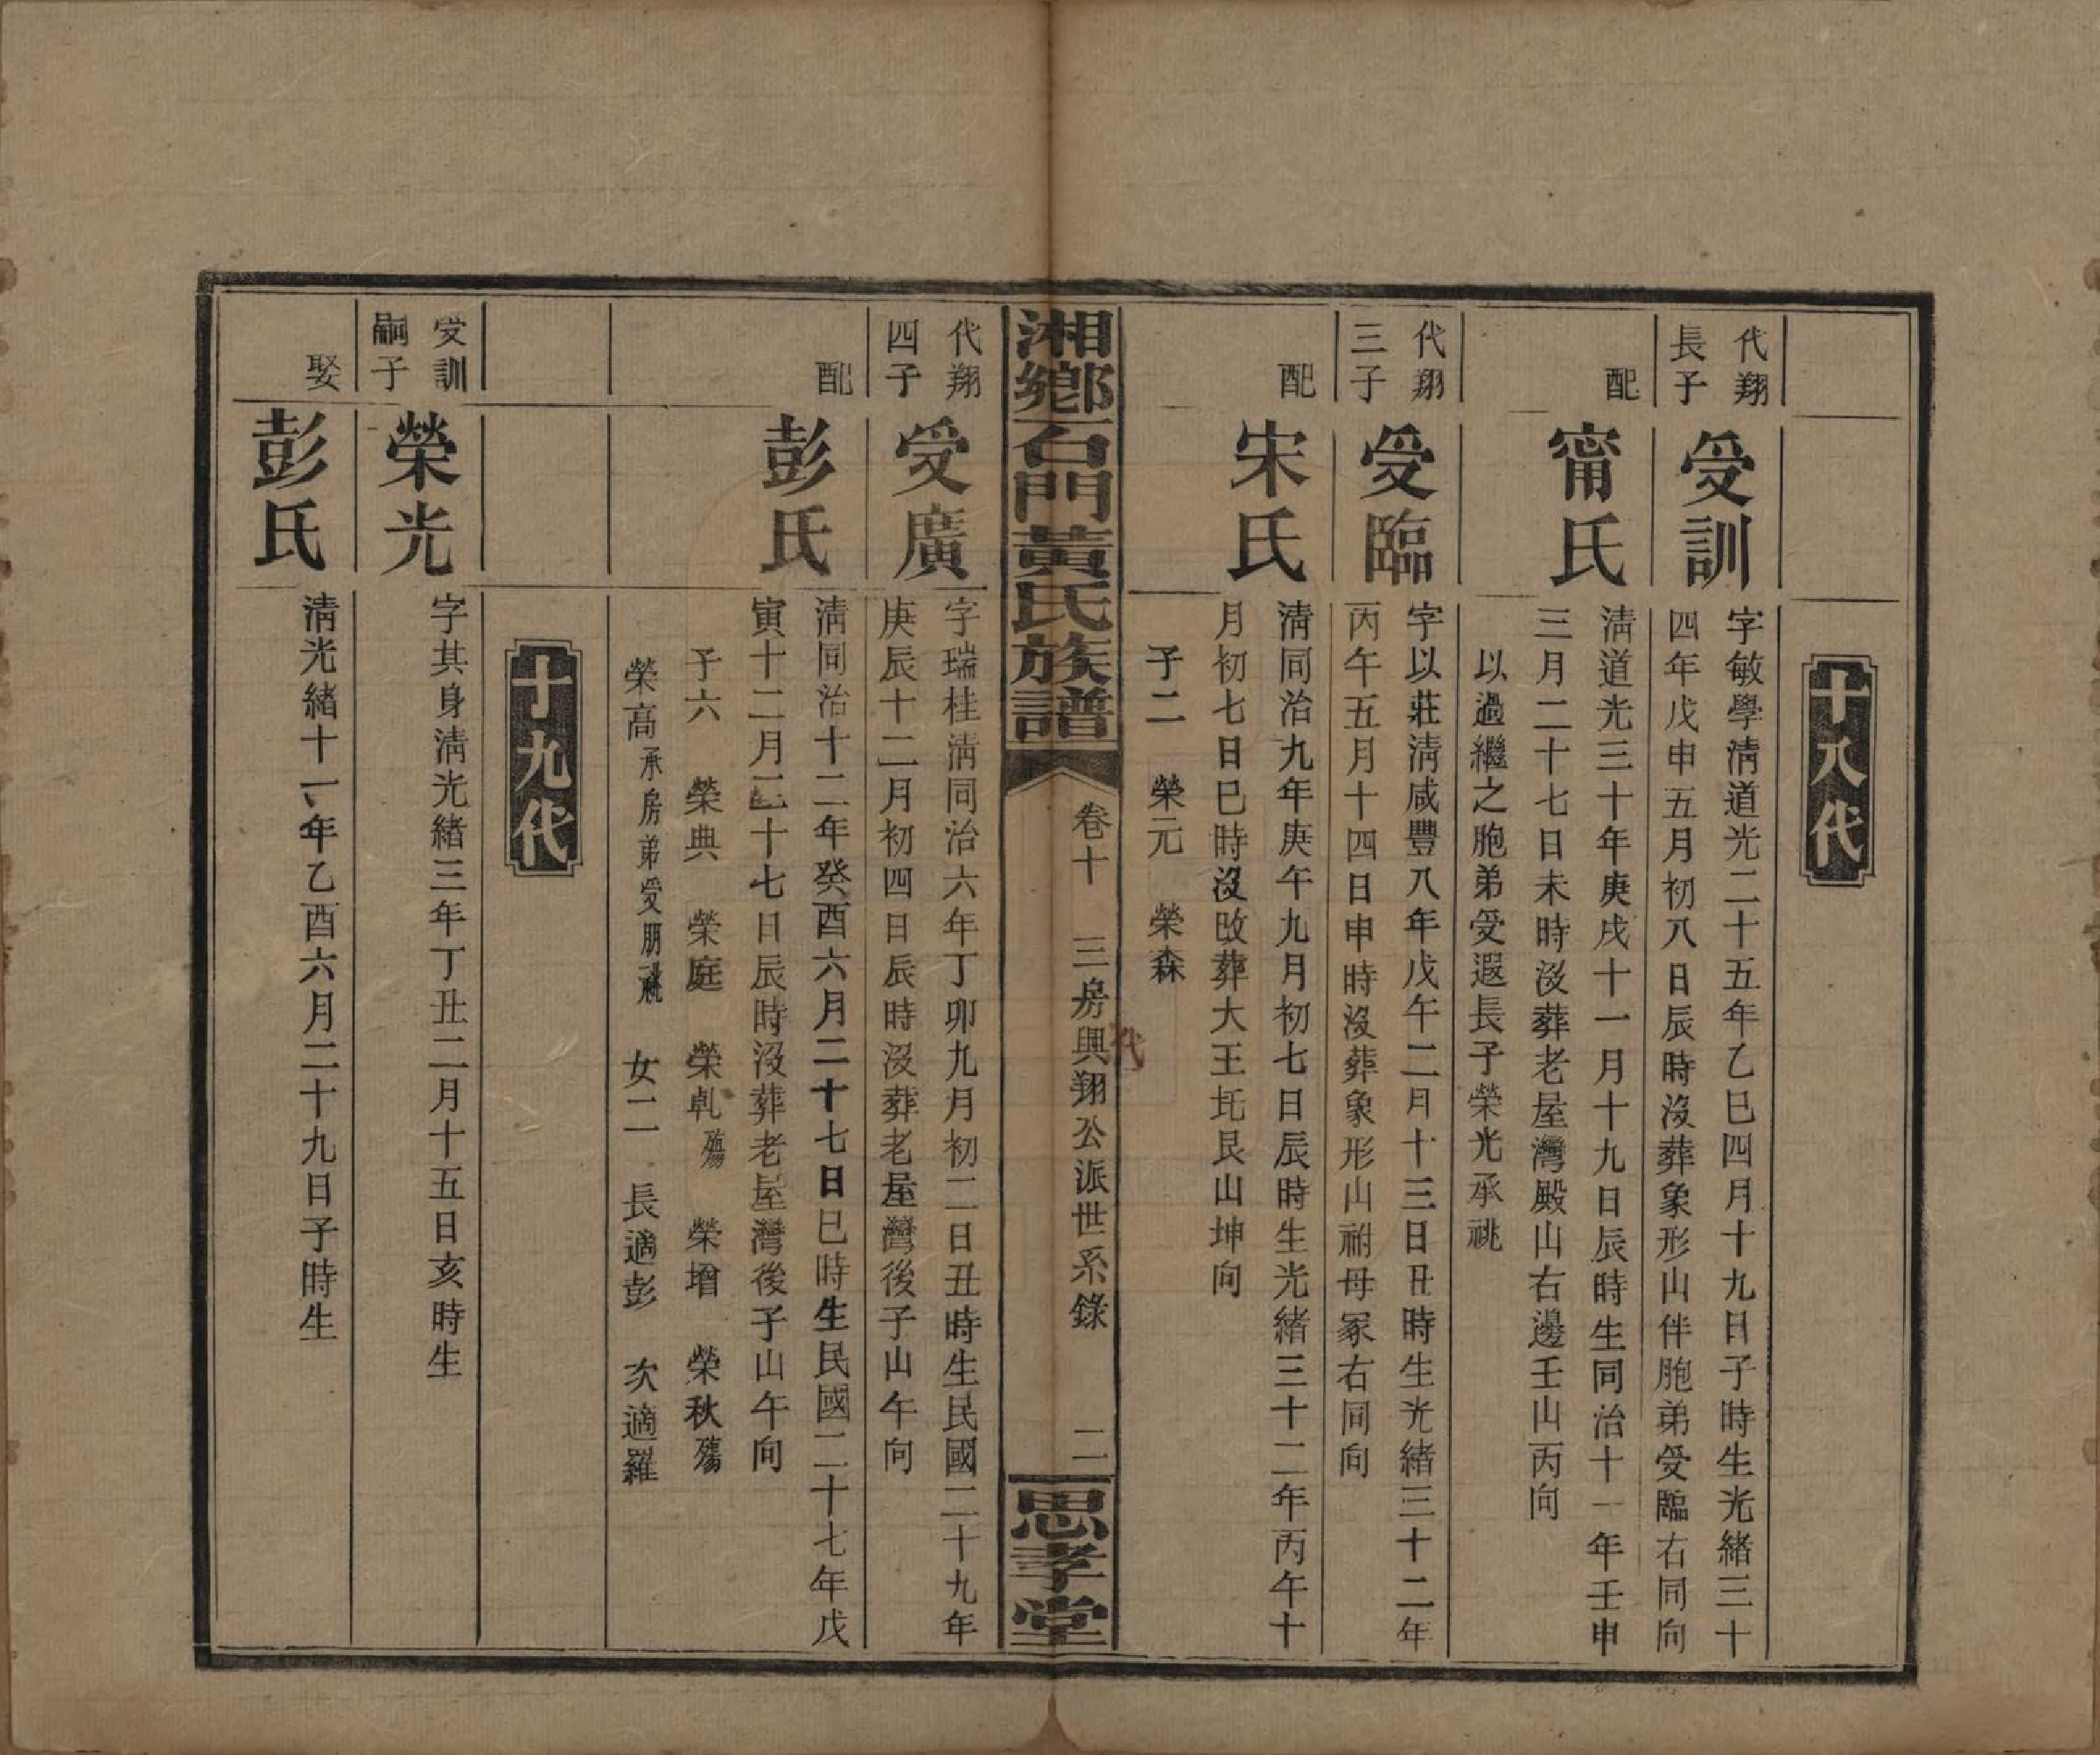 十八代
代翔
長子
受訓
字敏學淸道光二十五年乙巳四月十九日子時生光緒三十
四年戊申五月初八日辰時沒葬象形山伴胞弟受臨右同向
配
甯氏
淸道光三十年庚戌十一月十九日辰時生同治十一年壬申
三月二十七日未時沒葬老屋灣殿山右邊壬山丙向
以過繼之胞弟受遐長子榮光承祧
代翔
三子
受臨
字以莊淸咸豐八年戊午二月十三日丑時生光緒三十二年
丙午五月十四日申時沒葬象形山祔母冢右同向
配
宋氏
淸同治九年庚午九月初七日辰時生光緒三十二年丙午十
月初七日巳時沒改葬大王圫艮山坤向
子二 榮元 榮森
湘鄉石門黃氏族譜
卷十 三房興翔公派世系錄 二
代
思孝堂
代翔
四子
受廣
字瑞桂淸同治六年丁卯九月初二日丑時生民國二十九年
庚辰十二月初四日辰時沒葬老屋灣後子山午向
配
彭氏
淸同治十二年癸酉六月二十七日巳時生民國二十七年戊
寅十二月二十七日辰時沒葬老屋灣後子山午向
子六 榮典 榮庭 榮乹殤 榮增 榮秋殤
榮高承房弟受朋祧 女二 長適彭 次適羅
十九代
受訓
嗣子
榮光
字其身淸光緒三年丁丑二月十五日亥時生
娶
彭氏
淸光緒十一年乙酉六月二十九日子時生